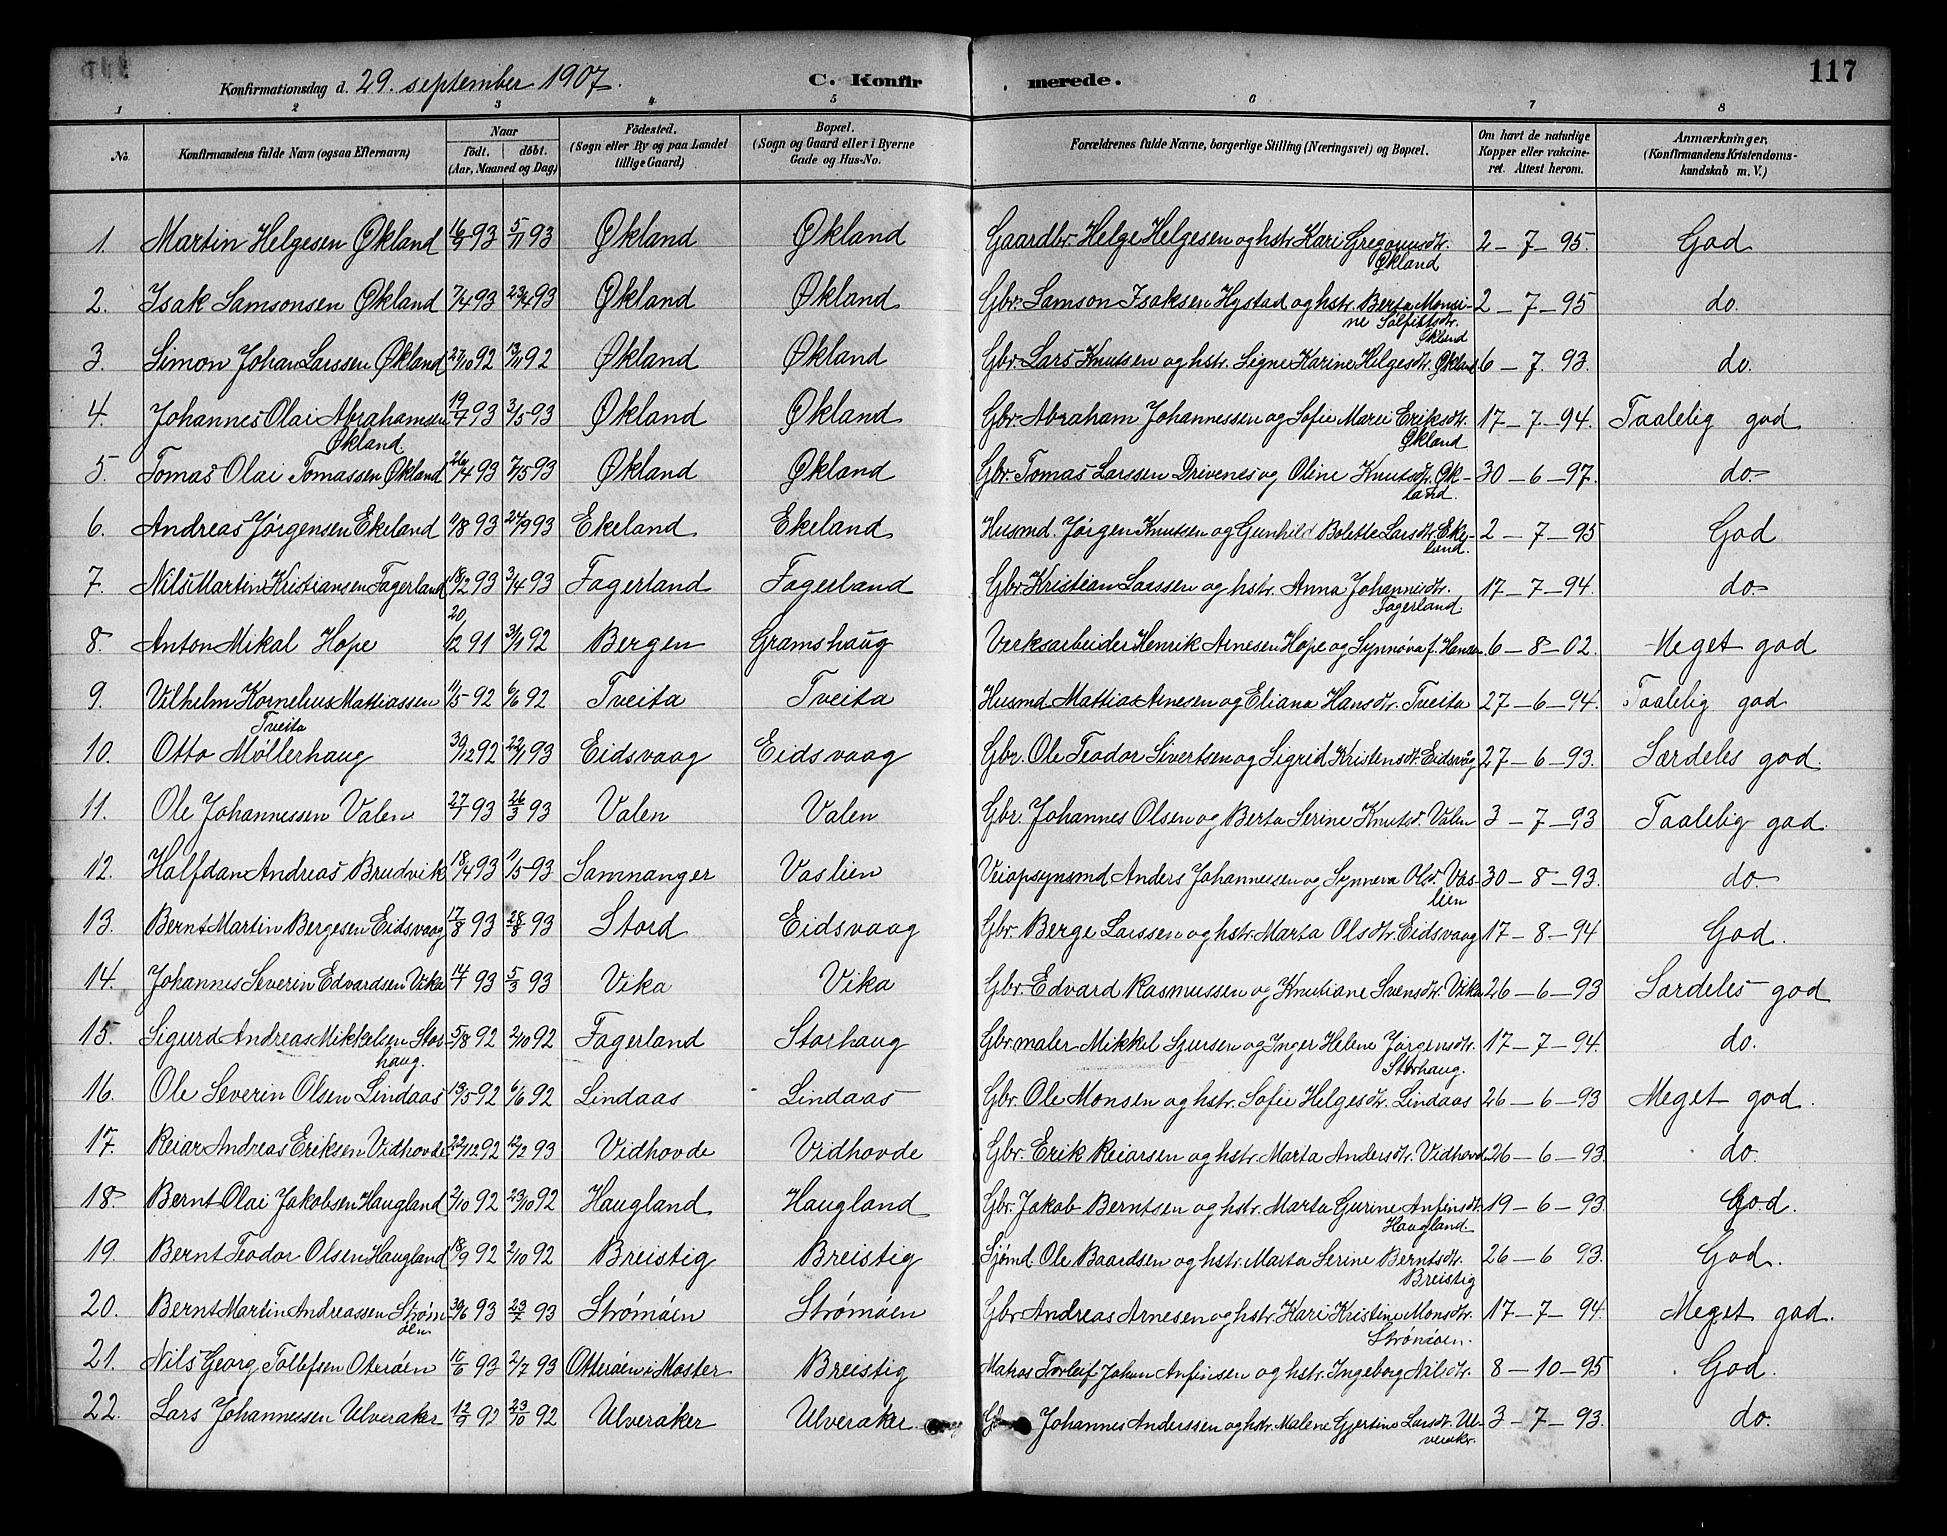 Konfirmationsdag d. 29. september 1907.
C. Konfirmerede.
117
1 2 3 4 5 6 7 8
No.
Konfirmandens fulde Navn (ogsaa Efternavn)
Naar
födt. döbt.
(Aar, Maaned og Dag)
Födested.
(Sogn eller By og paa Landet
tillige Gaard)
Bopæl.
(Sogn og Gaard eller i Byerne
Gade og Hus-No.
Forældrenes fulde Navne, borgerlige Stilling (Næringsvei) og Bopæl.
Om havt de naturlige
Kopper eller vakcine-
ret. Attest herom.
Anmærkninger,
(Konfirmandens Kristendoms-
kundskab m. V.)
1. Martin Helgesen Økland 16/9 93 5/11 93 Økland Økland Gaardbr. Helge Helgesen og hstr. Kari Gregoriusdtr. Økland 2-7-95. God
2. Isak Samsonsen Økland 7/4 93 23/4 93 Økland Økland Gbr. Samson Isaksen Hystad og hstr. Berta Monsine Sølfestsdtr. Økland 2-7-95 do.
3. Simon Johan Larssen Økland 27/10 92 13/11 92 Økland Økland Gbr. Lars Knutsen og hstr. Signe Karine Helgesdtr. Økland 6-7. 93. do.
4. Johannes Olai Abrahamsen Økland 19/4 93 3/5 93 Økland Økland Gbr. Abraham Johannessen og Sofie Marie Eriksdtr. Økland 17-7-94. Taalelig god
5. Tomas Olai Tomassen Økland 26/4 93 7/5 93 Økland Økland Gbr. Tomas Larssen Drivenes og Oline Knutsdtr. Økland. 30-6-97. do.
6. Andreas Jørgensen Ekeland 11/8 93 24/9 93 Ekeland Ekeland Husmd. Jørgen Knutsen og Gunhild Bolette Larsdtr. Ekeland. 2-7-95 God
7. Nils Martin Kristiansen Fagerland 18/2 93 3/4 93 Fagerland Fagerland Gbr. Kristian Larssen og hstr. Anna Johannisdtr. Fagerland 17-7-94. do.
8. Anton Mikal Hope 20/12 91 31/1 92 Bergen Gramshaug Verksarbeider Henrik Arnesen Hope og Synnøva f. Hansen 6-8-02. Meget god
9. Vilhelm Kornelius Mattiassen Tveita 11/5 92 6/6 92 Tveita Tveita Husmd Mattias Arnesen og Eliana Hansdtr. Tveita 27-6-94. Taalelig god
10. Otto Møllerhaug 30/12 92 22/1 93 Eidsvaag Eidsvaag Gbr. Ole Teodor Sivertsen og Sigrid Kristensdt. Eidsvåg 27-6-93. Særdeles god.
11. Ole Johannessen Valen 27/1 93 26/3 93 Valen Valen Gbr. Johannes Olsen og Berta Serine Knutsd. Valen 3-7-93 Taalelig god.
12. Halfdan Andreas Brudvik 18/4 93 11/5-93 Samnanger Vaslien Veiopsynsmd Anders Johannessen og Synneva Olsd. Vaslien 30-8-93. do.
13. Bernt Martin Bergesen Eidsvaag 17/8 93 28/8 93 Stord Eidsvaag Gbr. Berge Larssen og hstr. Marta Olsdtr. Eidsvaag 17-8-94 God.
14. Johannes Severin Edvardsen Vika 14/1 93 5/3 93 Vika Vika Gbr. Edvard Rasmussen og Knutiane Svensdtr. Vika 26-6-93 Særdeles god
15. Sigurd Andreas Mikkelsen Storhaug. 5/8 92 2/10 92 Fagerland Storhaug Gbr. maler Mikkel Sjursen og Inger Helene Jørgensdtr. Storhaug. 17-7-94. do.
16. Ole Severin Olsen Lindaas 13/5 92 6/6 92 Lindaas Lindaas Gbr. Ole Monsen og hstr. Sofie Helgesdtr. Lindaas 26-6-93 Meget god.
17. Reiar Andreas Eriksen Vidhovde 22/12 92 12/2 93 Vidhovde Vidhovde Gbr. Erik Reiarsen og hstr. Marta Andersdtr. Vidhovde 26-6-93. do.
18. Bernt Olai Jakobsen Haugland 2/10 92 23/10 92 Haugland Haugland Gbr. Jakob Berntsen og hstr. Marta Gurine Anfinsdtr. Haugland. 19-6-93. God.
19. Bernt Teodor Olsen Haugland 18/9 92 2/10 92 Breistig Breistig Sjømd. Ole Baardsen og hstr. Marta Serine Berntsdtr. Breistig 26-6 93. God.
20. Bernt Martin Andreassen Strømöen 30/6 93 23/7 93 Strømöen Strømöen Gbr. Andreas Arnesen og hstr. Kari Kristine Monsdtr. Strømöen. 17-7-94. Meget god.
21. Nils Georg Tollefsen Oterøen 10/6 93 2/7 93 Otterøen i Moster Breistig Matros Torleif Johan Anfinsen og hstr. Ingeborg Nilsdtr. 8-10-95 God.
22. Lars Johannessen Ulveraker 12/9 92 23/10 92 Ulveraker Ulveraker Johannes Anderssen og hstr. Malene Gjertine Larsdt. Ulveraker. 3-7-93. do.